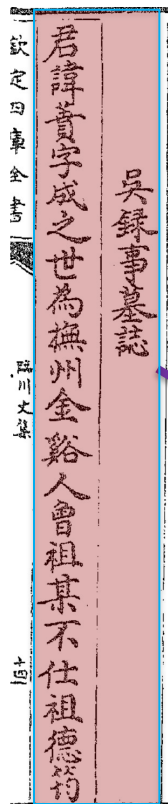 吳録事墓誌
君諱蕡字成之世為撫州金谿人曾祖某不仕祖德筠
欽定四庫全書
臨川文集
十四